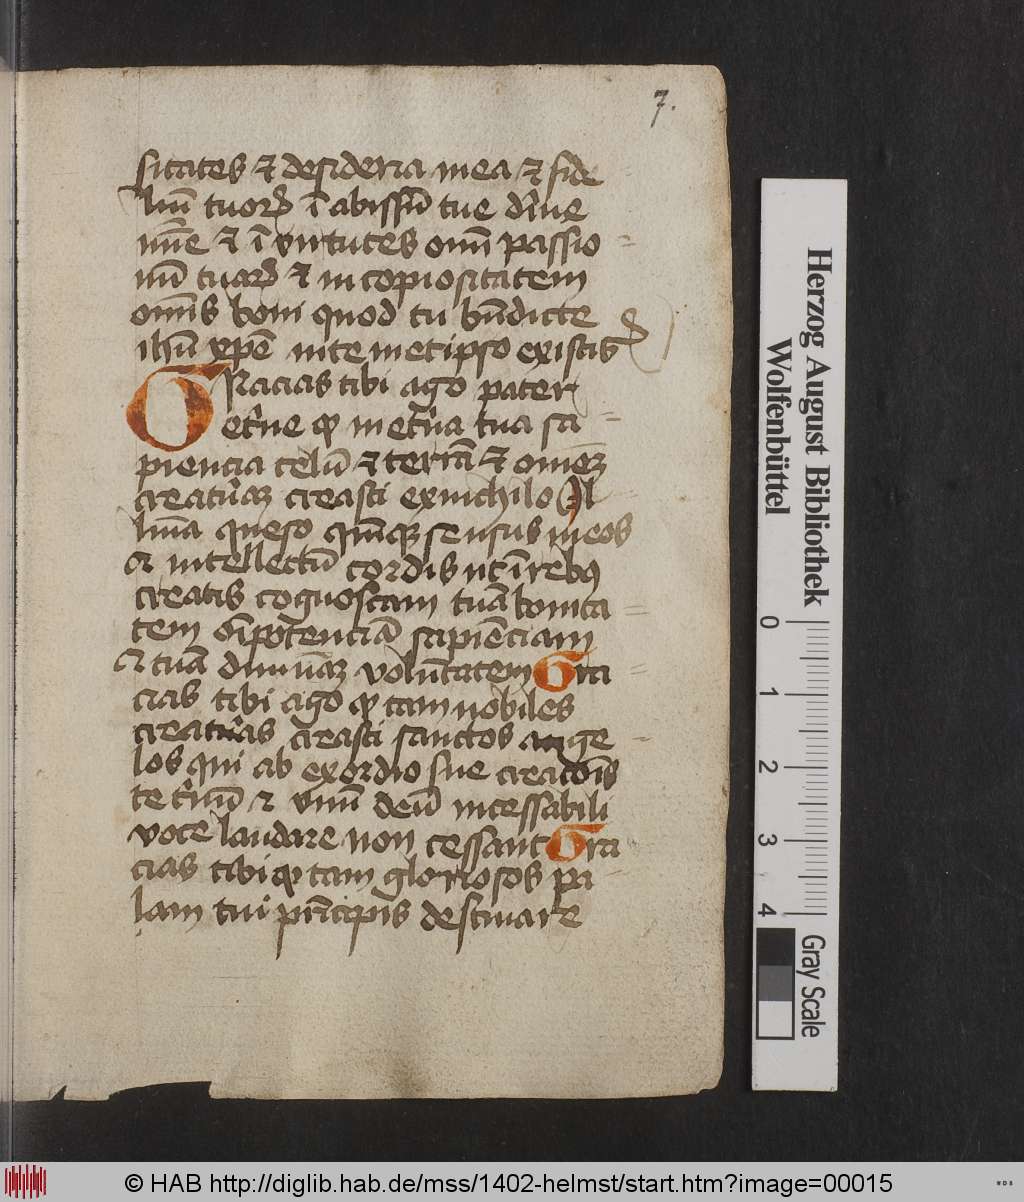 7.
sitates et desideria mea et fide
liū tuoꝝ ī abissū tue diuine
mīe et ī virtutes om̄ passio
nū tuaꝝ et in copiositatem
om̄is boni quod tu bn̄dicte
ihū xp̄e in temetipso existis
Gracias tibi ago pater
et̓ne ꝙ in et̓na tua sa
piencia celū et terrā et omēꝫ
creatūaꝫ creasti ex nichilo Il
lumīa queso quīqꝫ sensus meos
et intellectū cordis ut ī rebꝰ
creatis cognoscam tuā bonita
tem om̄ipotenciā sapiēciam
et tuā diuināꝫ volūtatem Gra
cias tibi ago ꝙ tam nobiles
creatūas creasti sanctos ange
los qui ab exordio sue creacōis
te t̓nū et vnū deū incessabili
voce laudare non cessant Gra
cias tibi ꝙ tam gloriosos pa
lam tui prīcipes
Herzog August Bibliothek
Wolfenbüttel
0 1 2 3 4
Gray Scale
© HAB http://diglib.hab.de/mss/1402-helmst/start.htm?image=00015